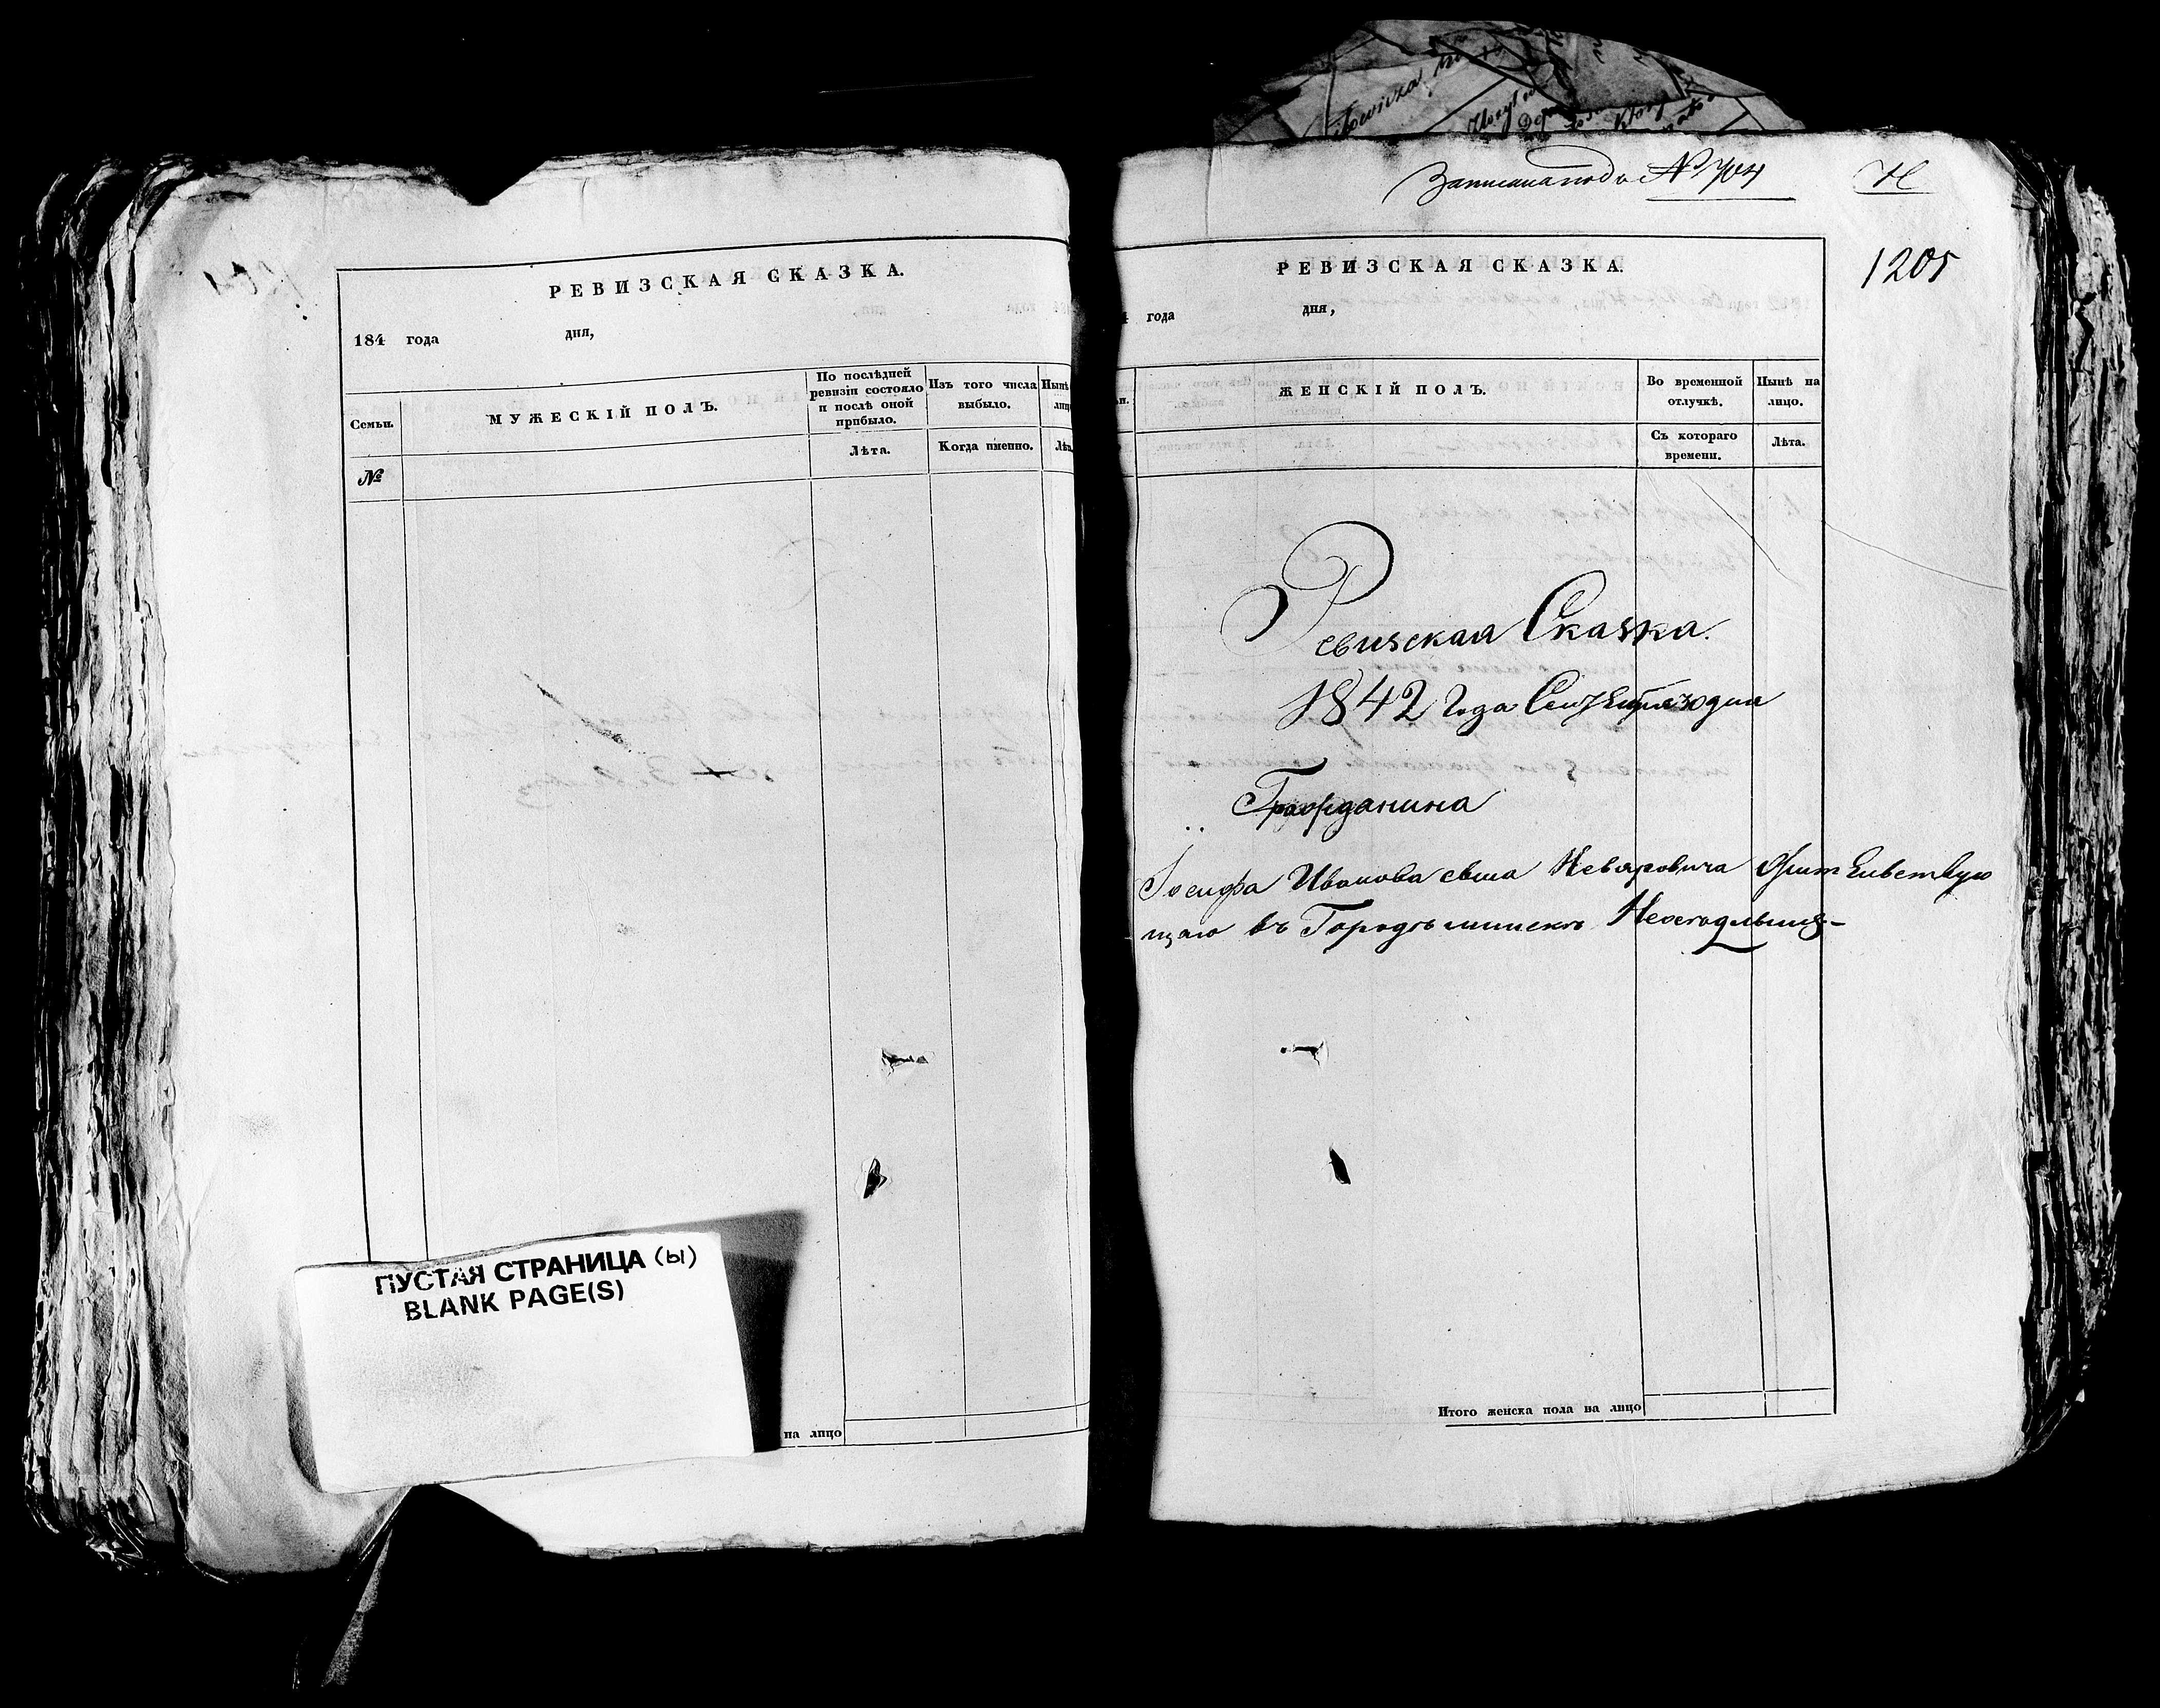 РЕВИЗСКАЯ СКАЗКА.
184 года дня,
Семьи.
МУЖЕСКІЙ ПОЛЪ.
По послѣдней
ревизіи состояло
и послѣ оной
прибыло.
Изъ того числа
выбыло.
Нынѣ
лицо
Лѣта.
Когда именно.
Лѣ
№
ПУСТАЯ СТРАНИЦА (ы)
BLANK PAGE(S)
на лицо
Записана подъ № 704
Н
1205
РЕВИЗСКАЯ СКАЗКА.
года дня,
ЖЕНСКІЙ ПОЛЪ.
Во временной
отлучкѣ.
Нынѣ на
лицо.
Съ котораго
времени.
Лѣта.
Ревизская Сказка.
1842 Года 30 дня
Гражданина
Іосифа Иванова сына Невяровича Жительствую
щаго въ Городѣ минскѣ
Итого женска пола на лицо